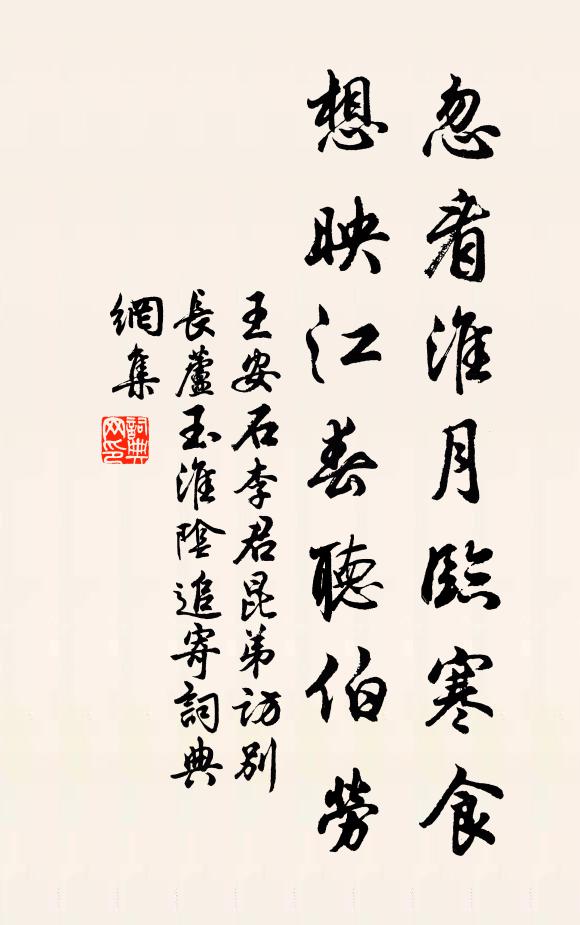 忽看淮月臨寒食
想映江春聽伯勞
王安石李君昆弟訪別
長蘆玉淮陰追寄詞典
網集
詞典
网印